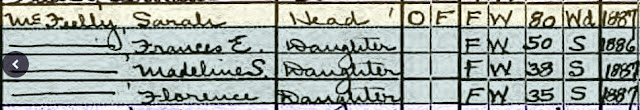 McFeelly, Sarah Head 1 O F F W 80 Wd
—— Frances E. Daughter F W 50 S 1886
—— Madeline S. Daughter F W 38 S
—— Florence Daughter F W 35 S